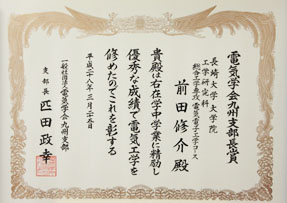 電気学会九州支部長賞
長崎大学大学院
工学研究科
総合工学専攻電気電子工学コース
前田修介殿
貴殿は右在学中学業に精励し
優秀な成績で電気工学を
修めたのでこれを彰する
平成二八年三月二五日
一般社団法人電気学会九州支部
支部長 匹田政幸